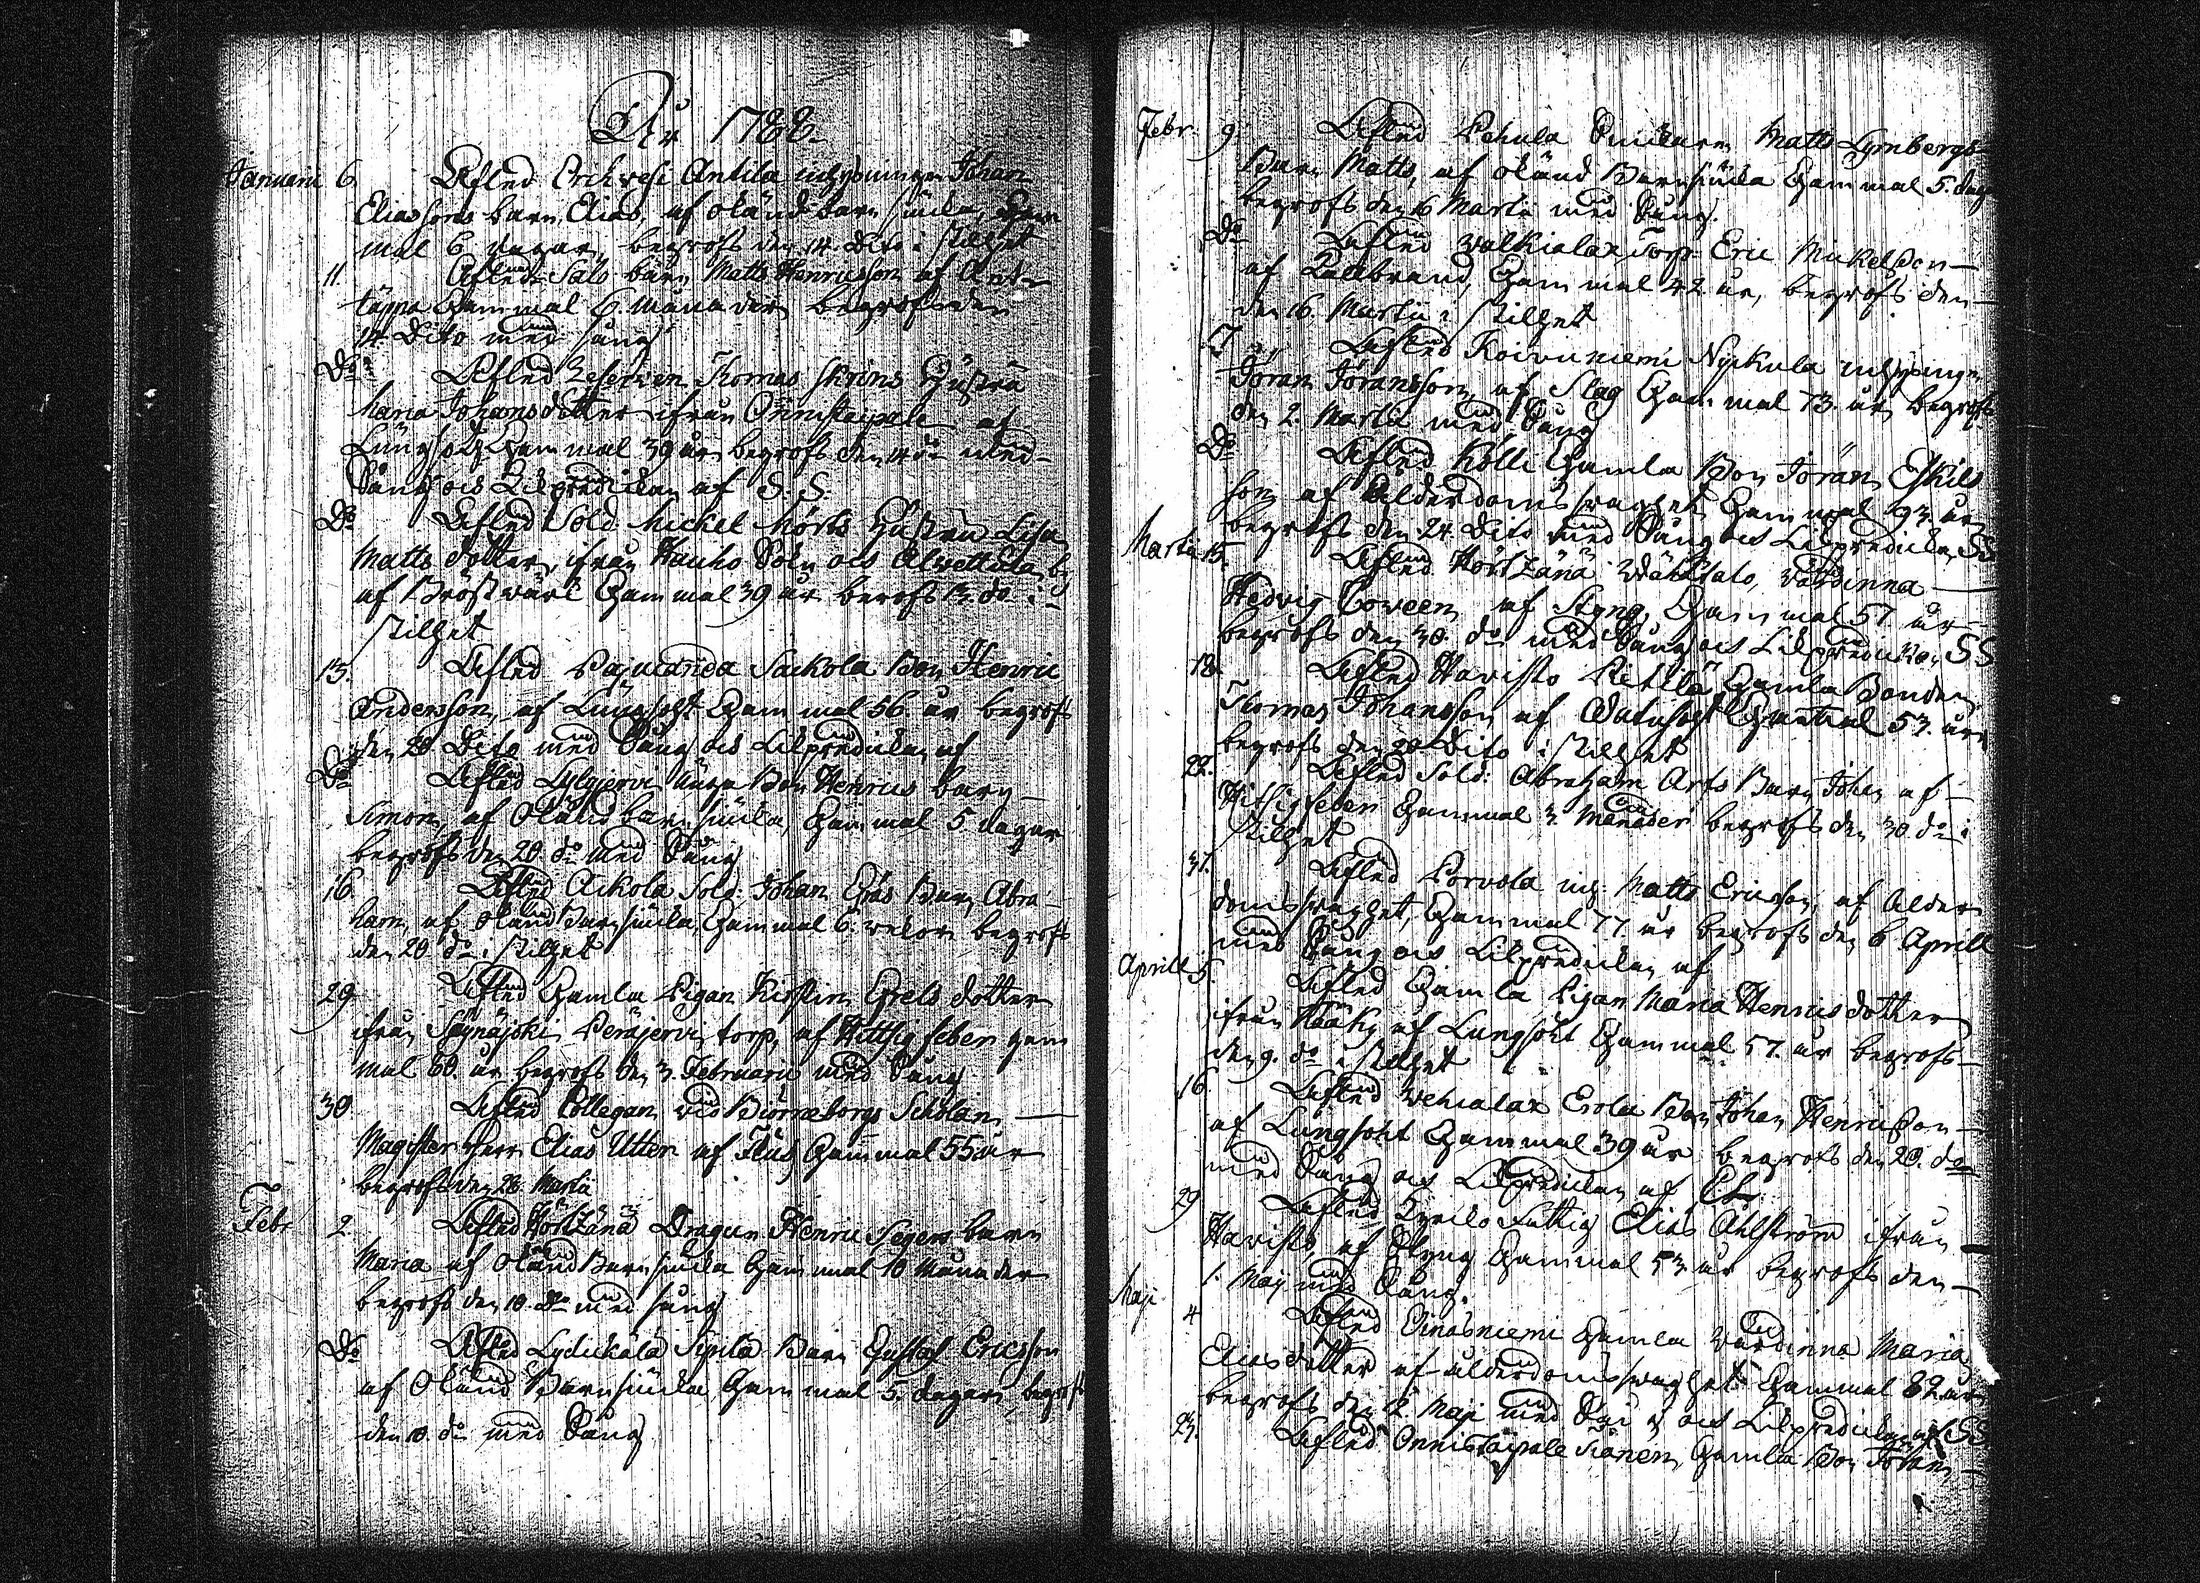 År 1788.
Januarii 6. Afled Erikvesi Antila inhysingen Johan
Eliassons barn Elias, af okänd barnsiuka, Gam
mal 6 dagar, begrofs den 14. Dito i stilhet
11. Afled Salo barn Matts Henricsson af And-
täppa Gammal 6. månader begrofs den
14 Dito med sång
Do Afled Thomas Skrins Hustru
Maria Johansdotter ifrån Onnistaipale af
Lungsot Gammal 39 år begrofs den 14 do med
Sång och Likpredikan af S. S.
Do Afled Sold. Mickel Mörts Hustru Lisa
Matts dotter, ifrån Hauho Sokn och Alvettula by
af Bröstvärk Gammal 39 år berofs 13. do i
stilhet
13. Afled Sackola Bon Henric
Andersson, af Lungsot Gammal 56 år begrofs
den 20 Dito med Sång och Likpredikan af
Do Afled Lylyjervi Bon Henrics barn
Simon, af Okänd barnsiuka, Gammal 5 dagar
begrofs den 20 do med Sång
16. Afled Ackola Sold. Johan Barn Abra-
ham, af okänd Barnsiuka, Gammal 6. wekor begrofs
den 20 do i stilhet
29. Afled Gamla Pigan Kirstin Grels dotter
ifrån Peräjervi torp, af Hittsig feber gam
mal 60. år begrofs den 3. Februarii med Sång
30. Afled Collegan vid Biörneborgs Scholan
Magister Herr Elias Utter af Flus Gammal 55 år
begrofs den 28. Martii
Febr. 2. Afled Dragun Henric Segers barn
Maria af okänd Barnsiuka Gammal 10 Månader
begrofs den 10. do med sång
Do Afled Lydickälä Sipilä Barn Gustaf Ericsson
af Okänd Barnsiuka Gammal 5. dagar, begrofs
den 10. do med Sång
Febr. 9. Afled Pehula Matts Lyrnbergs
Barn Matts, af okänd Barnsiuka Gammal 5. dag
begrofs den 16 Martii med Sång.
Do Afled Torp. Eric Mickelsson
af Kallbrand, Gammal 42. år, begrofs den
den 16. Martii i stilhet
17 Afled Koivuniemi Nyckula inhysingen
Jöran Jöransson af Slag Gammal 73. år begrofs
den 2. Martii med Sång
Do Afled Kölli Gamla Bon Jöran Eskils
son af Alderdoms swaghet Gammal 93. år
begrofs den 24. Dito med Sång och Likpredikan SS
Martii 15. Afled wärdinna
Hedvig af Styng, Gammal 57 år
begrofs den 30. do med Sång och Likpredikan SS
18. Afled Havisto Pietilä Gamla Bonden
Thomas Johansson af Gammal 53. år
begrofs den 20 Dito i stilhet
22. Afled Sold. Abraham Arfs Barn Johan af
Hitsig feber Gammal 3. Månader begrofs den 30. do i
stilhet
31. Afled Porvola inh. Matts Ericsson, af Alder
doms swaghet, Gammal 77 år begrofs den 6 Aprill
med Sång och Likpredikan af
Aprill 5. Afled Gamla Pigan Maria Henricsdotter
ifrån af Lungsot Gammal 57. år begrofs
den 9. do i stilhet
16 Afled Erola Bon Johan Henricsson
af Lungsot Gammal 39 år begrofs den 20. do
med Sång och Likpredikan af
29 Afled Fattig Elias Ahlström ifrån
Havisto af Styng Gammal 53 år begrofs den
1. Maij med Sång.
Maji 4 Afled Einäsniemi Gamla wärdinna Maria
Eliasdotter af ålderdoms swaghet Gammal 82 år
begrofs den Maji med Sång och Likpredikan af SS
23. Afled Onnistaipale Gamla Bon Johan